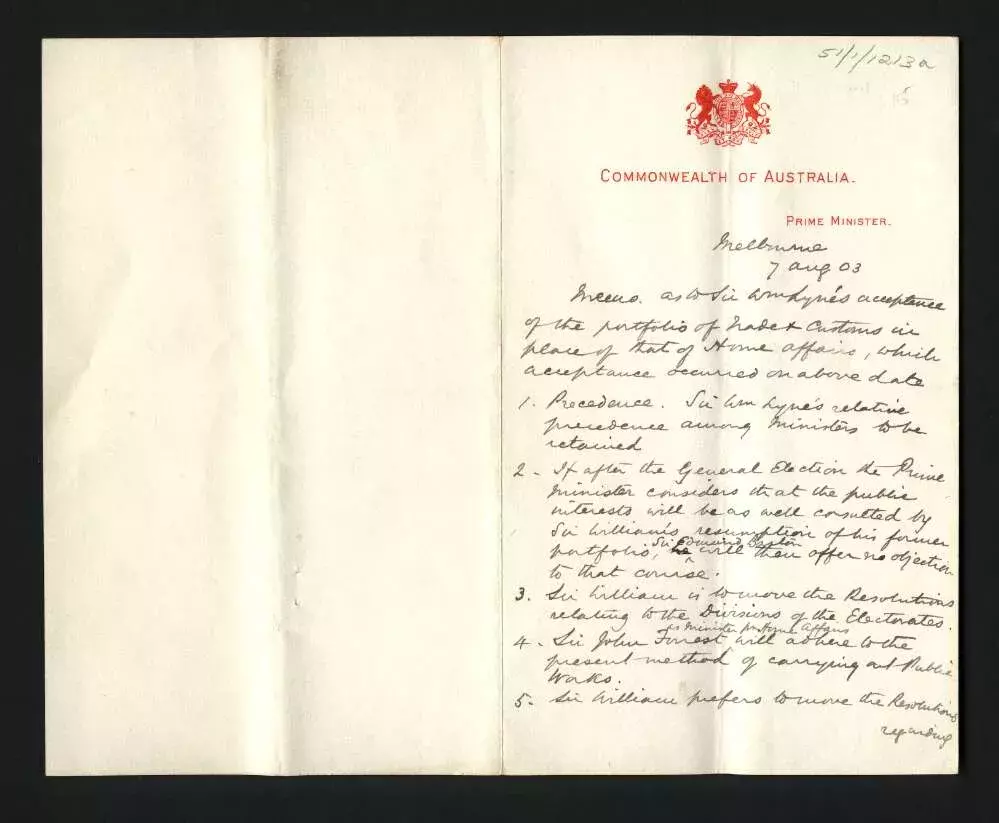 51/1/1213a
COMMONWEALTH OF AUSTRALIA.
PRIME MINISTER.
Melbourne
7 Aug 03
Memo. as to Sir Wm Lyne's acceptance
of the portfolio of Trade & Customs in
place of that of Home Affairs, which
acceptance occurred on above date
1. Precedence. Sir Wm Lyne's relative
precedence among Ministers to be
retained
2. If after the General Election the Prime
Minister considers that the public
interests will be as well consulted by
Sir William's resumption of his former
Sir Edmund Barton
portfolio, he will then offer no objection
to that course.
3. Sir William is to move the Resolutions
relating to the Divisions of the Electorates.
as Minister for Home Affairs
4. Sir John Forrest will adhere to the
present method of carrying out Public
Works.
5. Sir William prefers to move the Resolutions
regarding